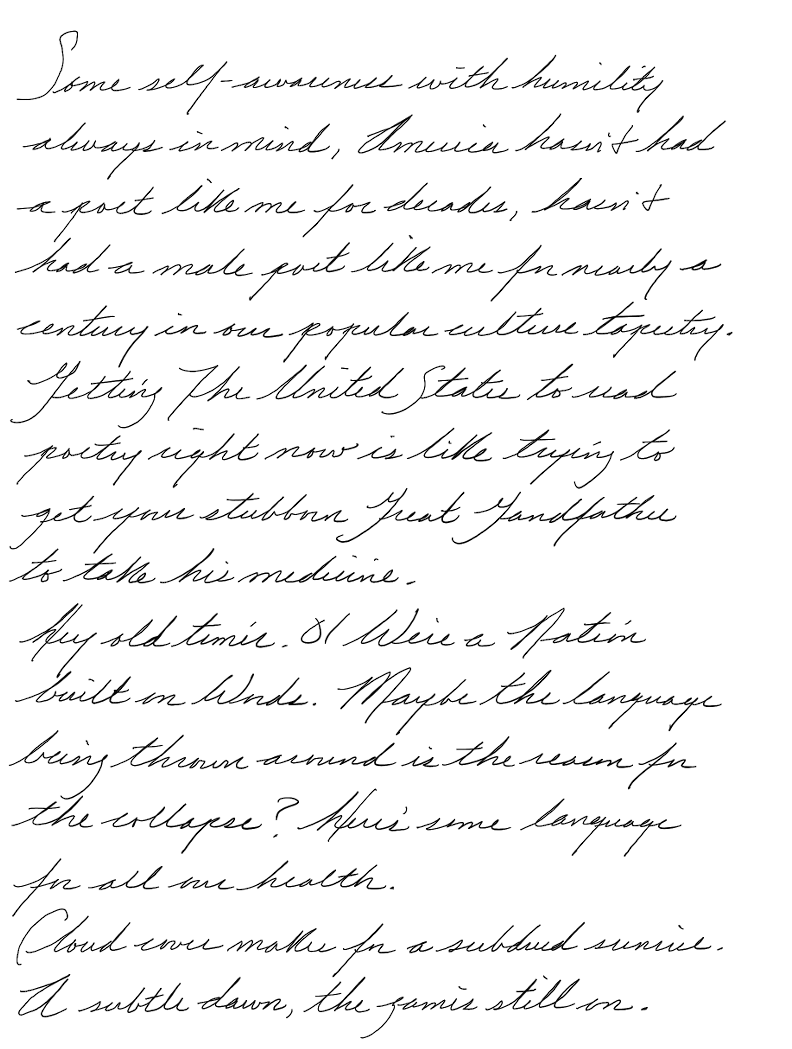 Some self-awareness with humility
always in mind, America hasn't had
a poet like me for decades, hasn't
had a male poet like me for nearly a
century in our popular culture tapestry.
Getting The United States to read
poetry right now is like trying to
get your stubborn Great Grandfather
to take his medicine.
Hey old timer. We're a Nation
built on Words. Maybe the language
being thrown around is the reason for
the collapse? Here's some language
for all our health.
Cloud cover makes for a subdued sunrise.
A subtle dawn, the game's still on.